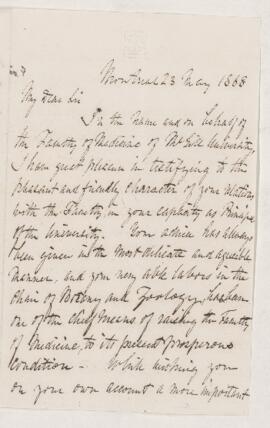 Montreal 23 May 1868
My Dear Sir
In the name and on behalf of
the Faculty of Medicine of McGill University,
I have great pleasure in testifying to the
pleasant and friendly character of your relations
with the Faculty, in your capacity as Principal
of the University. Your advice has always
been given in the most delicate and agreeable
manner, and your very able labors in the
chair of Botany and Zoology,
one of the chief means of raising the Faculty
of Medicine, to its present prosperous
condition - While wishing you
on your own account a more important